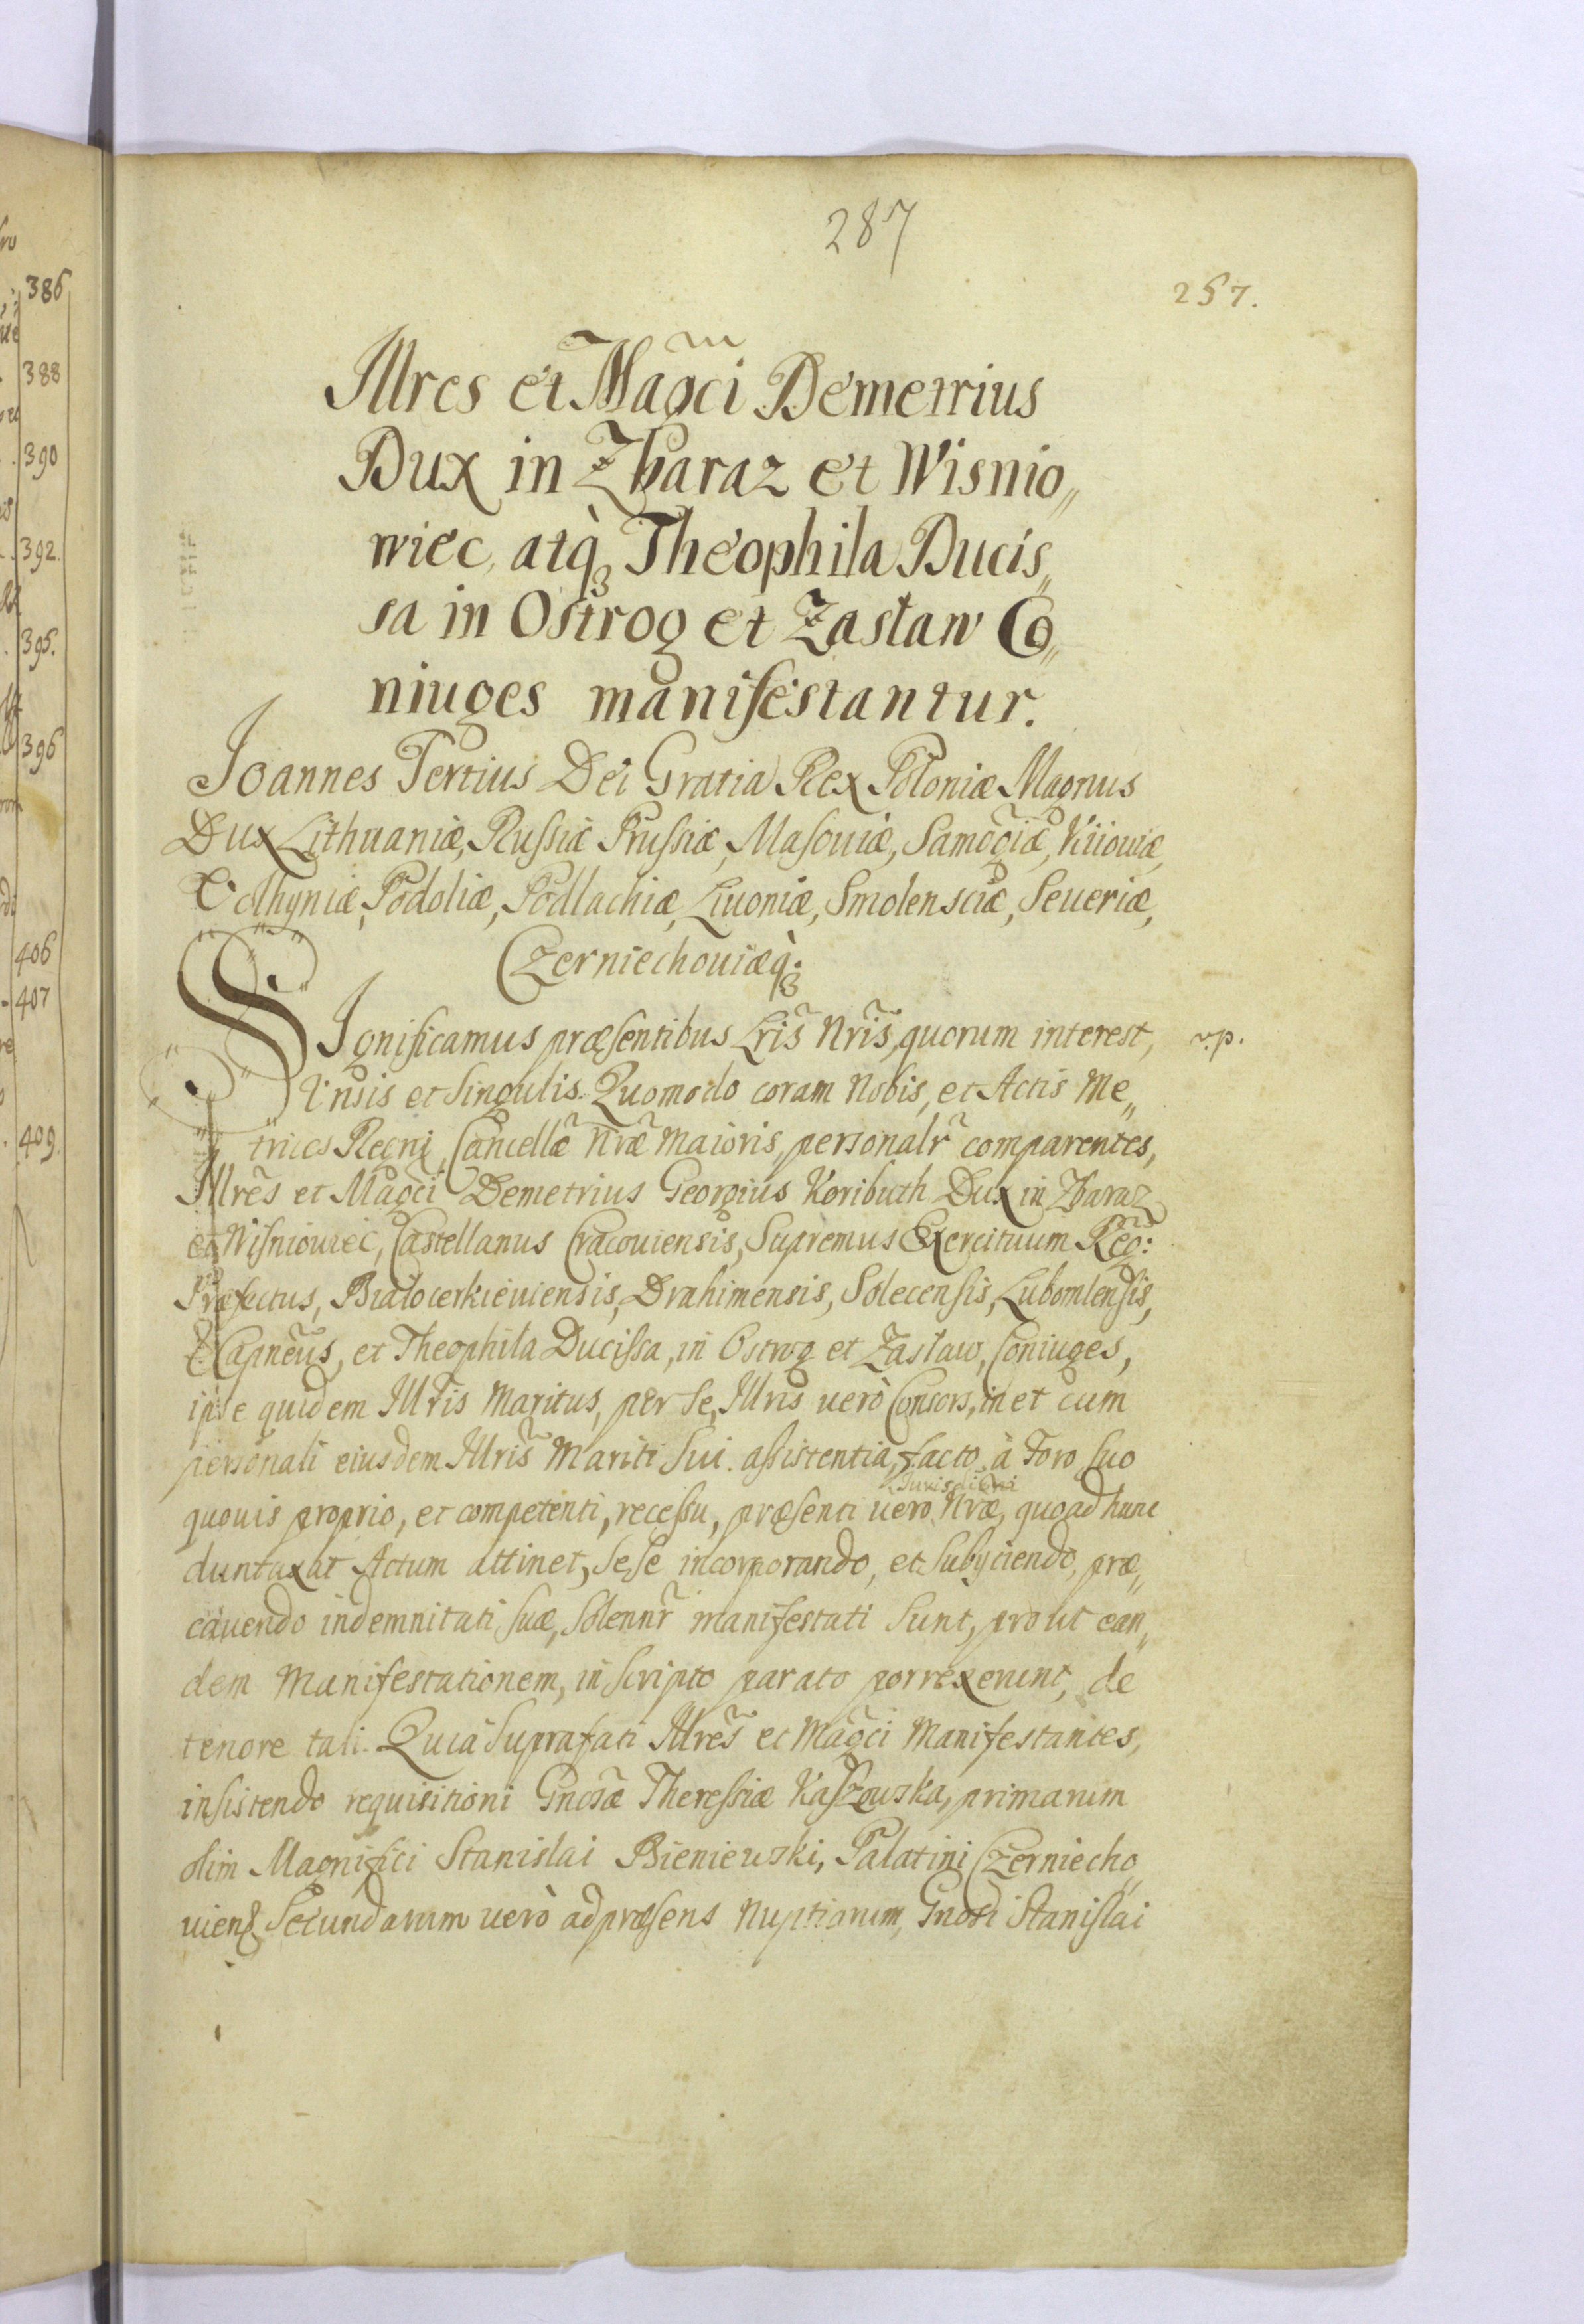 287
257.
Illres et Magci Demetrius
Dux in Zbaraz et Wisnio„
wiec, atq Theophila Ducis„
sa in Ostrog et Zasław Co„
niuges manifestantur.
Joannes Tertius Dei Gratia Rex Poloniæ Magnus
Dux Lithuaniæ, Russiæ Prussiæ, Masouiæ, Samogiæ, Kiiouiæ,
Volhyniæ, Podoliæ, Podlachiæ, Liuoniæ, Smolensciæ, Seueriæ,
Czerniechouiæq.
SIgnificamus præsentibus Lris Nris, quorum interest, v.p.
Vnsis et singulis. Quomodo coram Nobis, et Actis Me„
trices Regni Cancellæ Nræ Maioris, personalr comparentes,
Illres et Magci Demetrius Georgius Koributh Dux in Zbaraz
et Wisniouiec, Castellanus Cracouiensis, Supremus Exercituum Reg:
Præfectus, Białocerkieuiensis, Drahimensis, Solecensis, Lubomlensis,
Capneus, et Theophila Ducissa, in Ostrog et Zasław, Coniuges,
ipse quidem Illris Maritus, per se, Illris uerò Consors, in et cum
personali eiusdem Illris Mariti sui assistentia, facto à Foro suo
quouis proprio, et competenti, recessu, præsenti uero Jurisdicni Nræ, quoad hunc
duntaxat Actum attinet, sese incorporando, et subyciendo, præ„
cauendo indemnitati suæ, solennr manifestati sunt, prout ean„
dem Manifestationem, in scripto parato porrexerunt, de
tenore tali. Quia suprafati Illres et Magci Manifestantes,
insistendo requisitioni Gnosæ Theressiæ Kaszouska, primarum
olim Magnifici Stanislai Bieniewski, Palatini Czerniecho„
uiens. Secundarum uerò ad præsens Nuptiarum, Gnosi Stanislai
386
388
390
392.
395.
396
406
407
409.